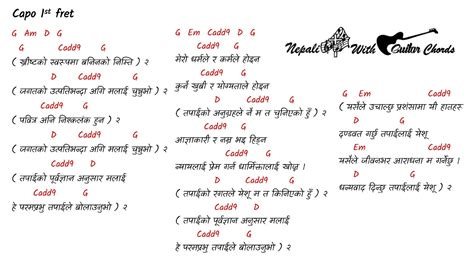 Capo 1st fret
G Am D G
G Cadd9 G
( ख्रीष्टको स्वरुपमा बनिनको निम्ति ) २
D Cadd9 G
( जगतको उत्पत्तिभन्दा अगि मलाई चुन्नुभो ) २
Cadd9 G
( पवित्र अनि निष्कलंक हुन ) २
D Cadd9 G
( जगतको उत्पत्तिभन्दा अगि मलाई चुन्नुभो ) २
Cadd9 D
( तपाईको पूर्वज्ञान अनुसार मलाई
Cadd9 G
हे परमप्रभु तपाईले बोलाउनुभो ) २
G Em Cadd9 D G
Cadd9 G
मेरो धर्मले र कर्मले होइन
D G
कुनै खुबी र योग्यताले होइन
Cadd9 G
( तपाईको अनुग्रहले नै म त चुनिएको हुँ ) २
Cadd9 G
आज्ञाकारी र नम्र भइ हिड्न
D G
न्यायलाई प्रेम गर्न धार्मिकतालाई खोज्न ।
Cadd9 G
( तपाईको रगतले येशू म त किनिएको हुँ ) २
Cadd9 D
( तपाईको पूर्वज्ञान अनुसार मलाई
Cadd9 G
हे परमप्रभु तपाईले बोलाउनुभो ) २
Nepali With Guitar Chords
G Em Cadd9
( यसैले उचाल्छु प्रशंसामा यी हातहरू
D G
दण्डवत गर्छु तपाईलाई येशू
Em Cadd9
यसैले जीवनभर आराधना म गर्नेछु ।
D G
धन्यवाद दिन्छु तपाईलाई येशू ) २